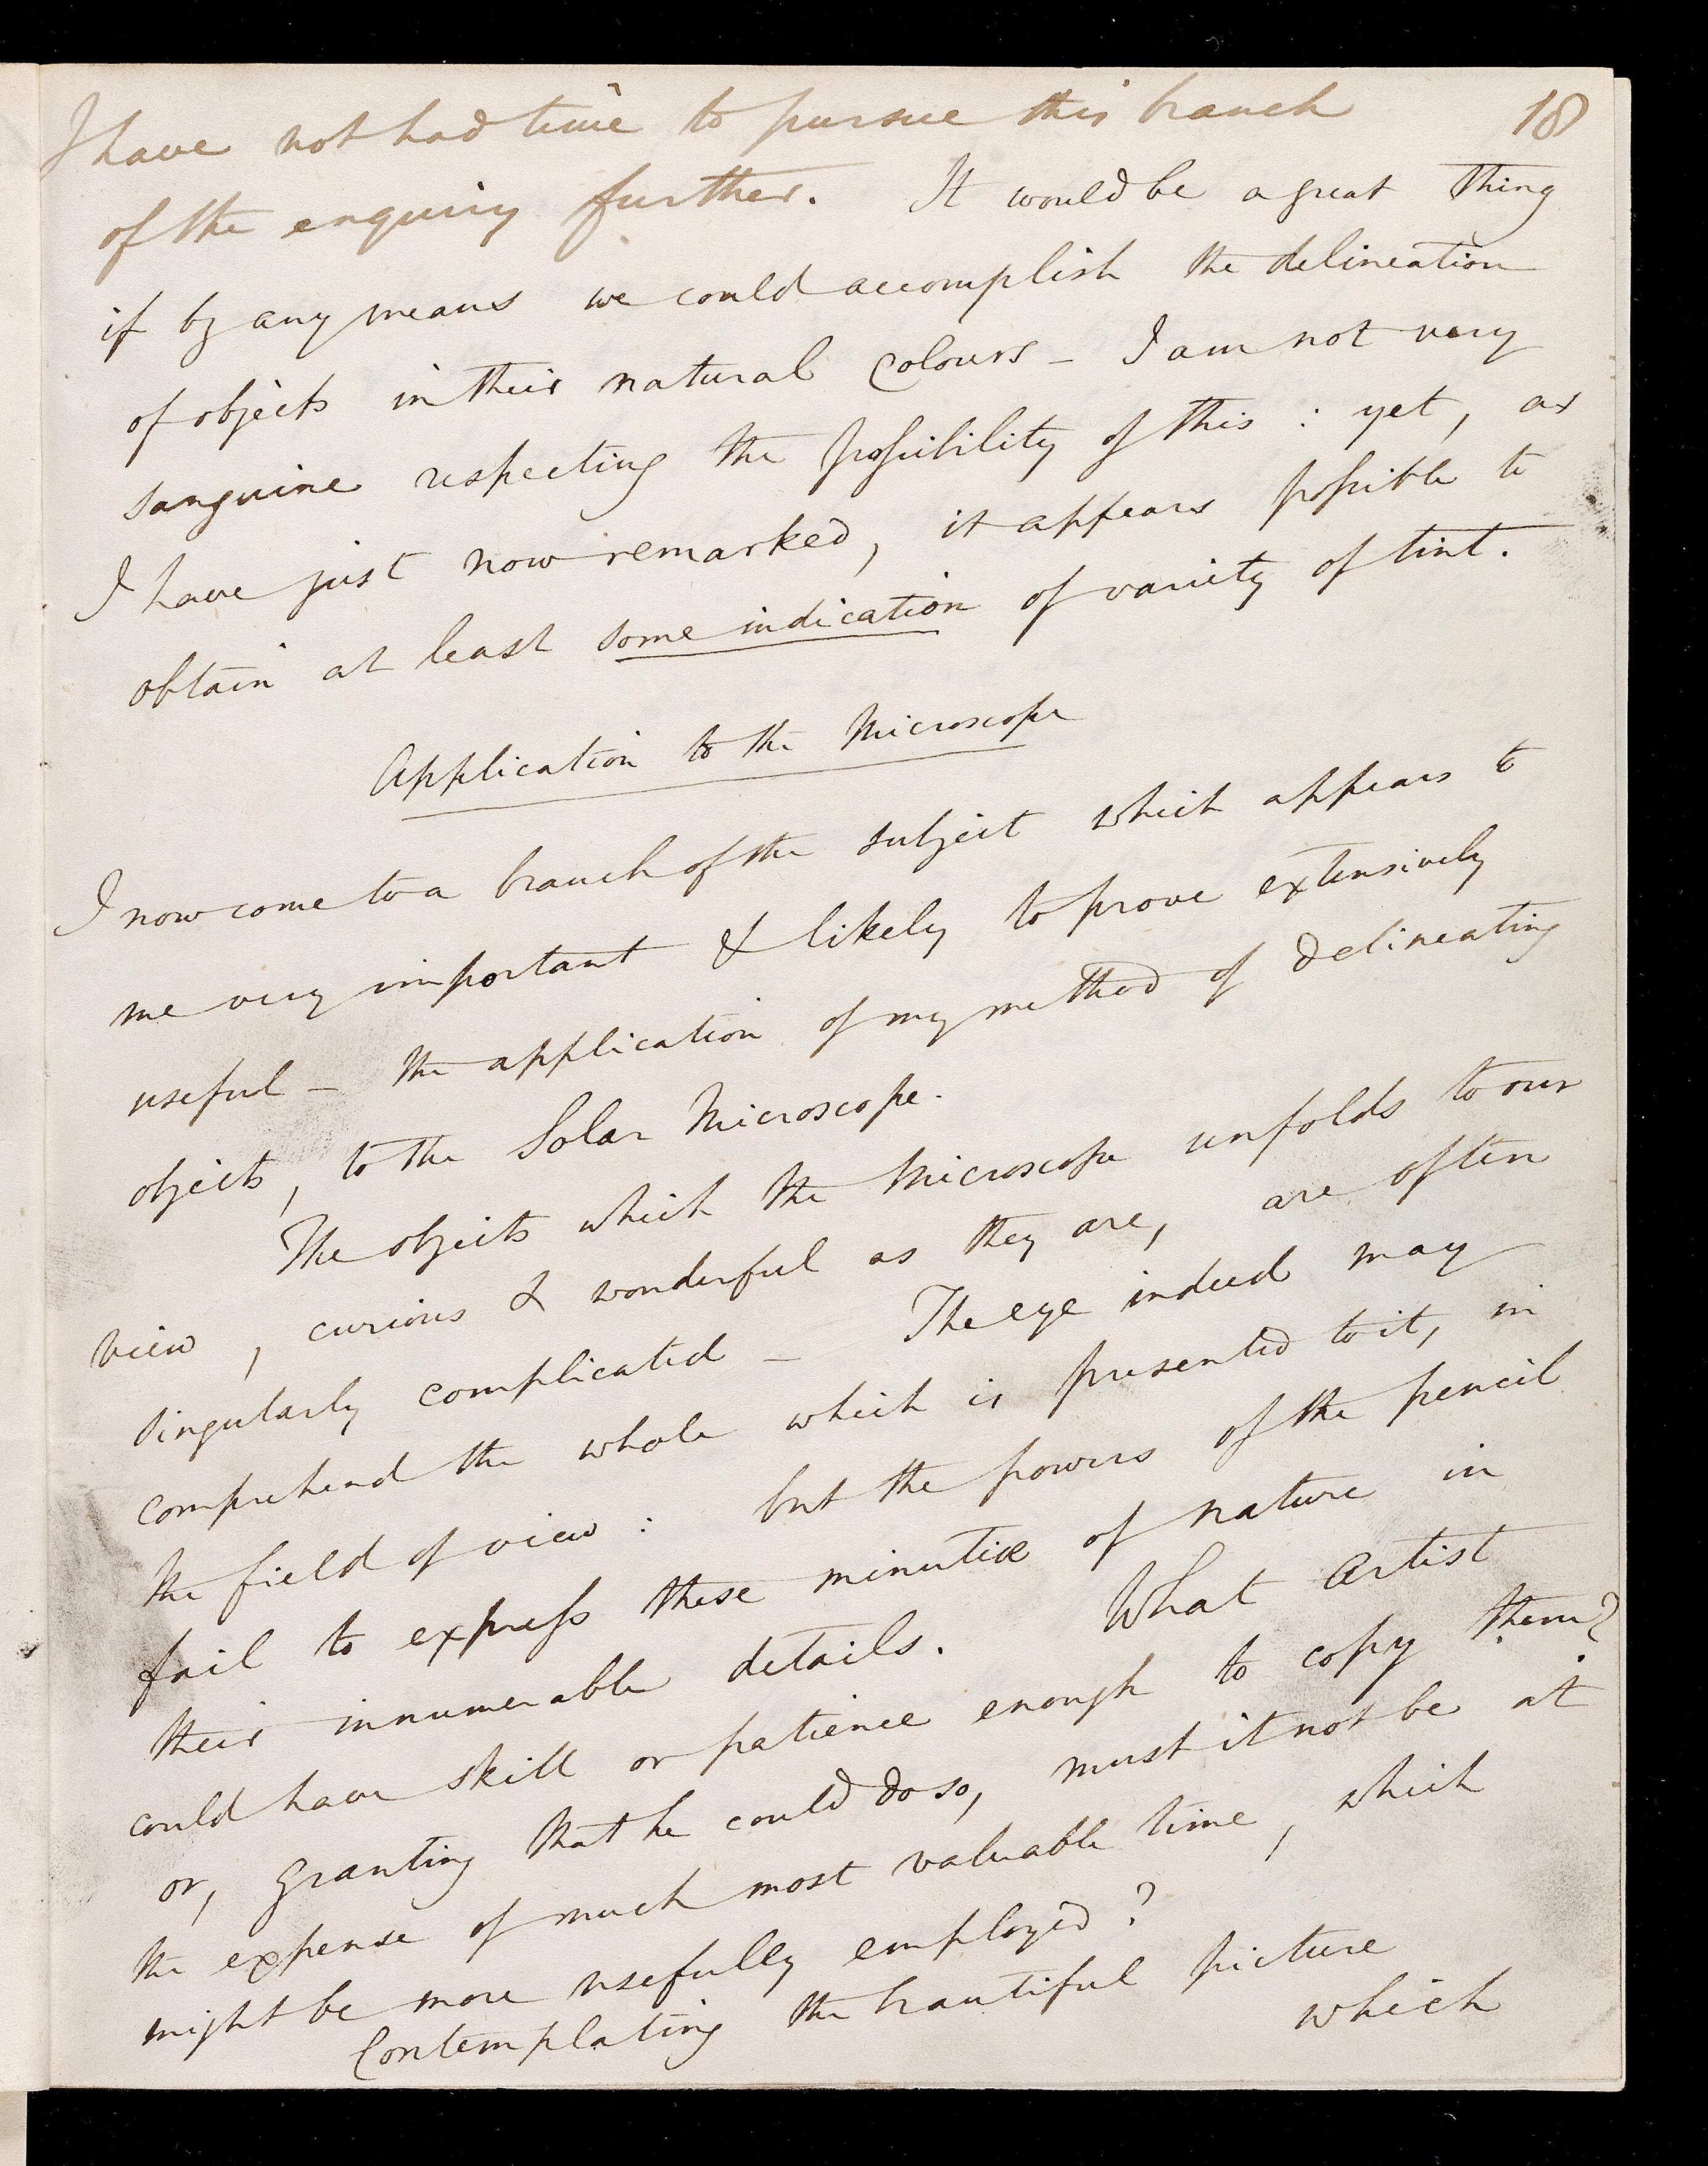 I have not had time to pursue this branch 18
of the enquiry further. It would be a great thing
if by any means we could accomplish the delineation
of objects in their natural Colours – I am not very
sanguine respecting the possibility of this : yet, as
I have just now remarked, it appears possible to
obtain at least some indication of variety of tint.
Application to the Microscope
I now come to a branch of the subject which appears to
me very important & likely to prove extensively
useful – the application of my method of delineating
objects, to the Solar Microscope.
The objects which the Microscope unfolds to our
view, curious & wonderful as they are, are often
singularly complicated – The eye indeed may
comprehend the whole which is presented to it, in
the field of view : but the powers of the pencil
fail to express these minutiæ of nature in
their innumerable details. What artist
could have skill or patience enough to copy them?
or, granting that he could do so, must it not be at
the expense of much most valuable time, which
might be more usefully employed?
Contemplating the beautiful picture
which